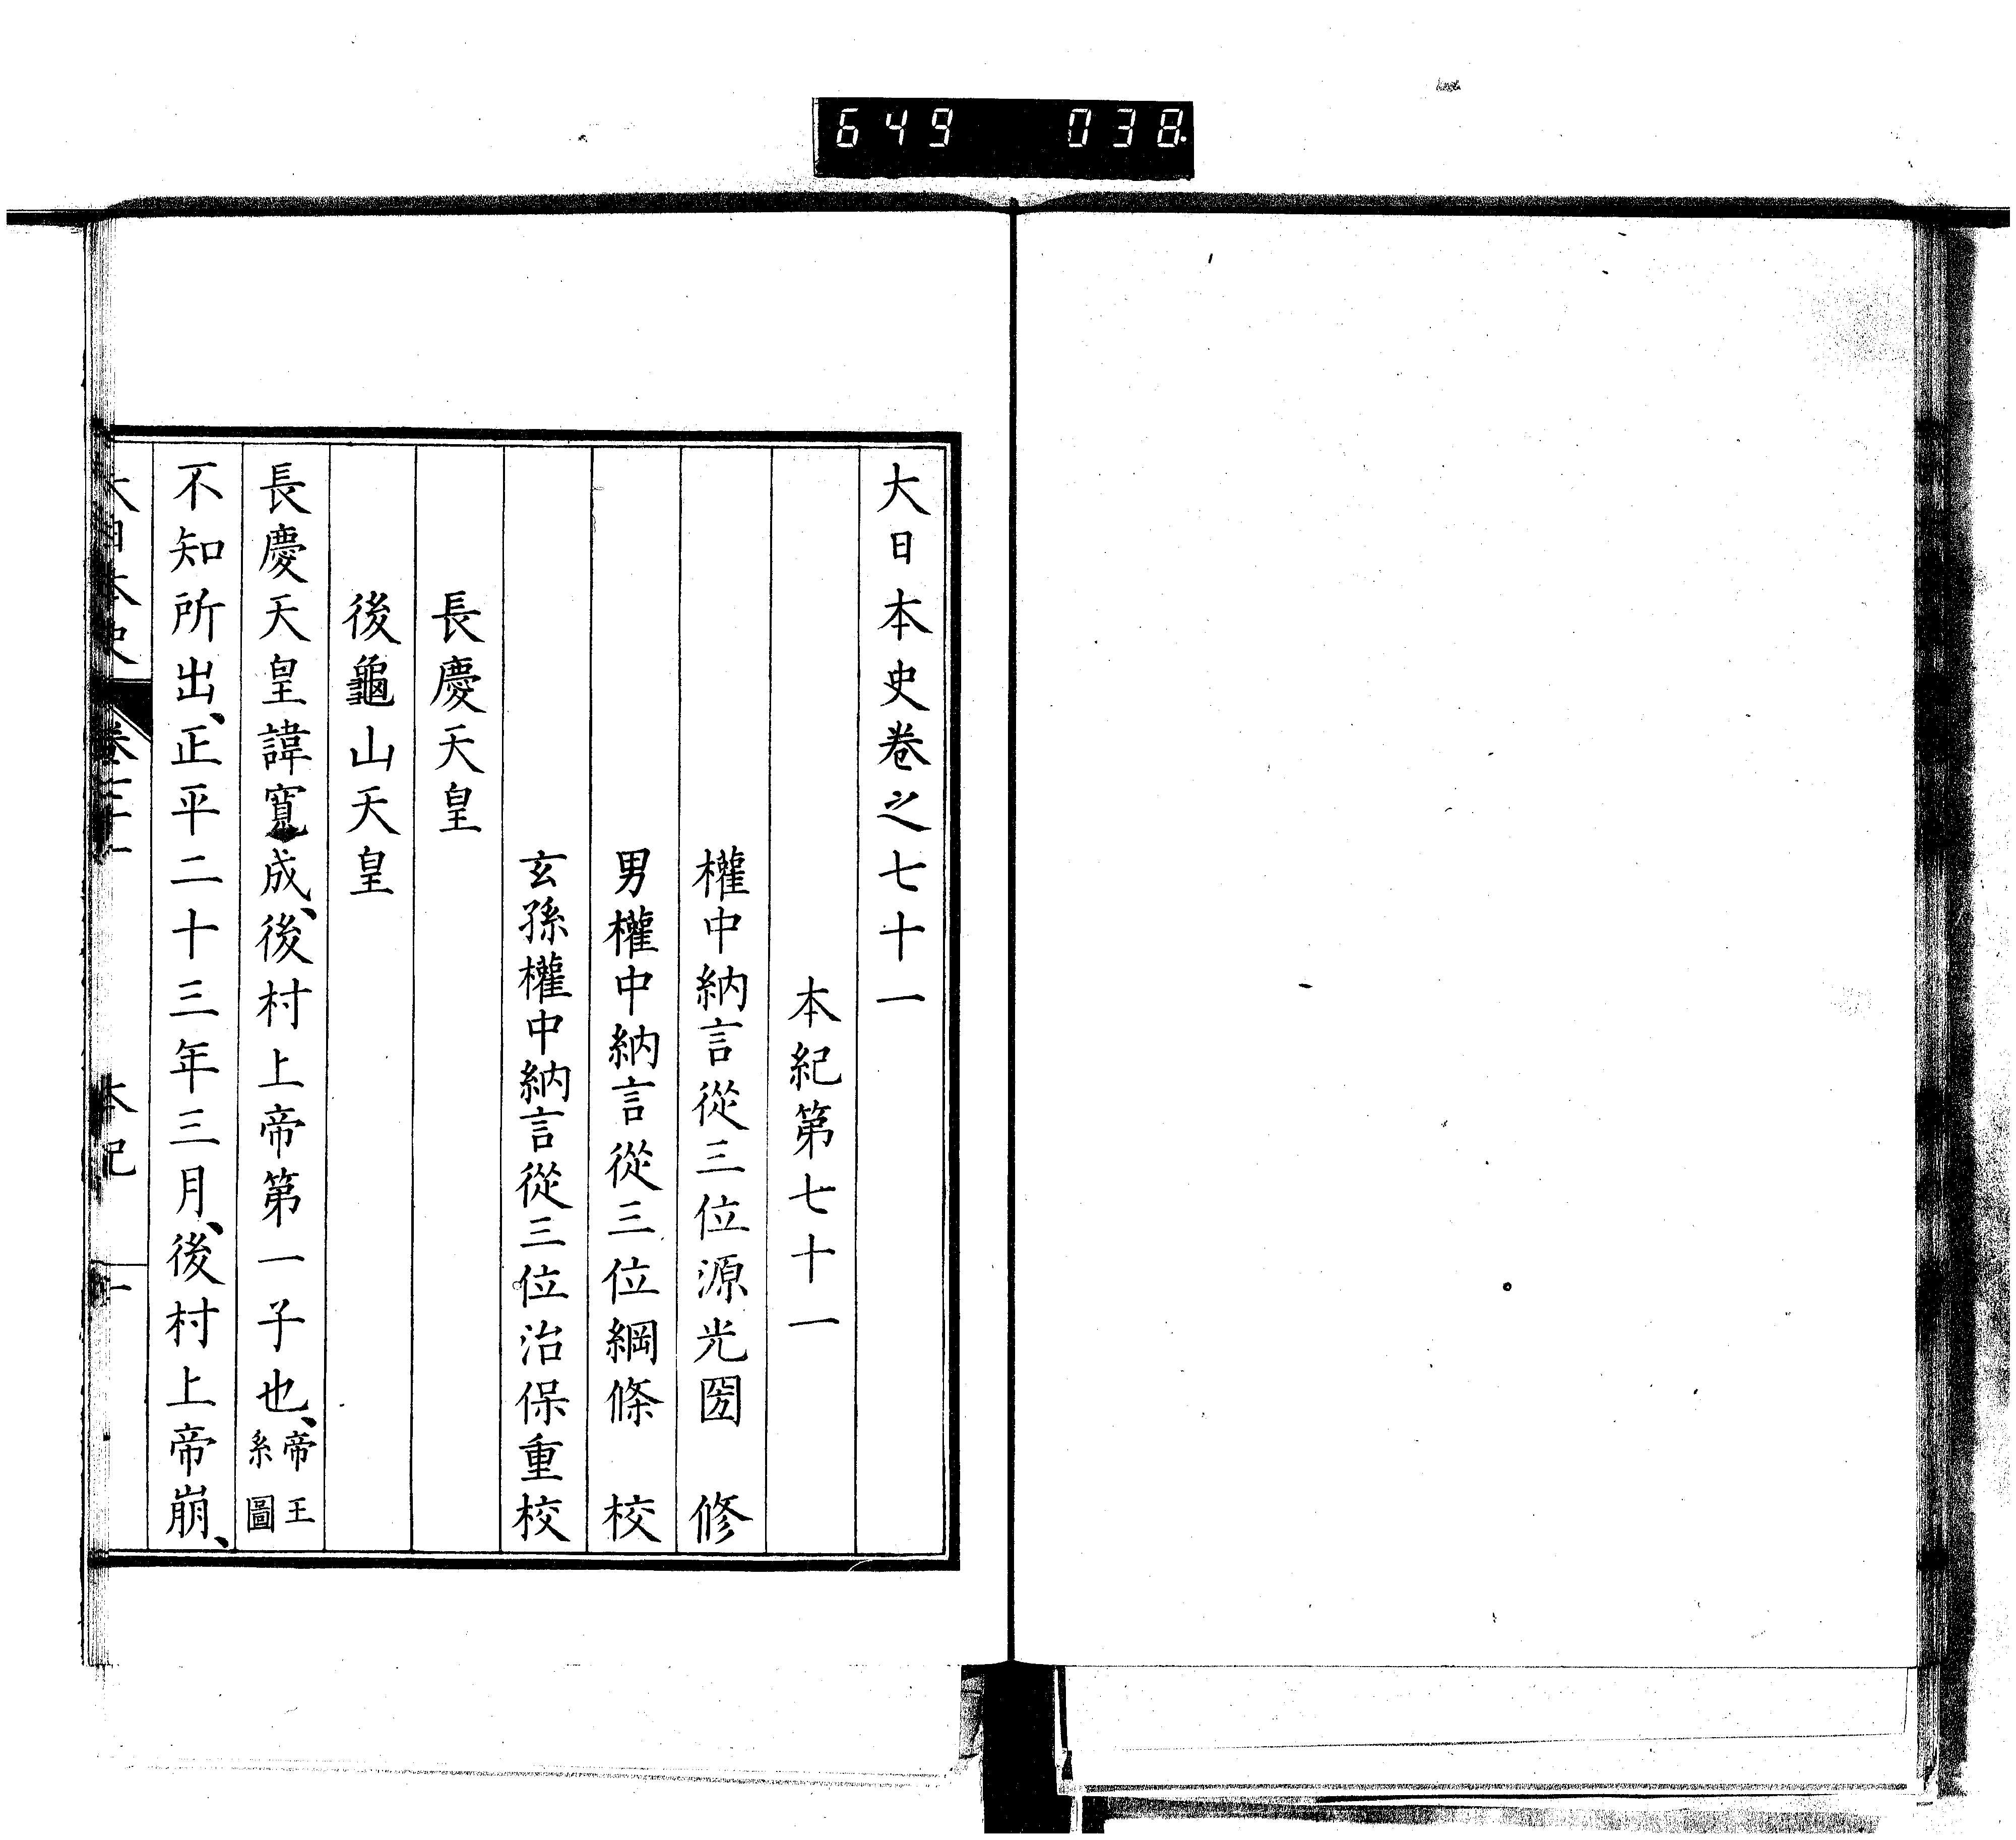 649 038
大日本史卷之七十一
本紀第七十一
權中納言從三位源光圀 修
男權中納言從三位綱條 校
玄孫權中納言從三位治保重校
長慶天皇
後龜山天皇
長慶天皇諱寬成、後村上帝第一子也、帝王系圖
不知所出、正平二十三年三月、後村上帝崩、
大日本史 卷 本紀